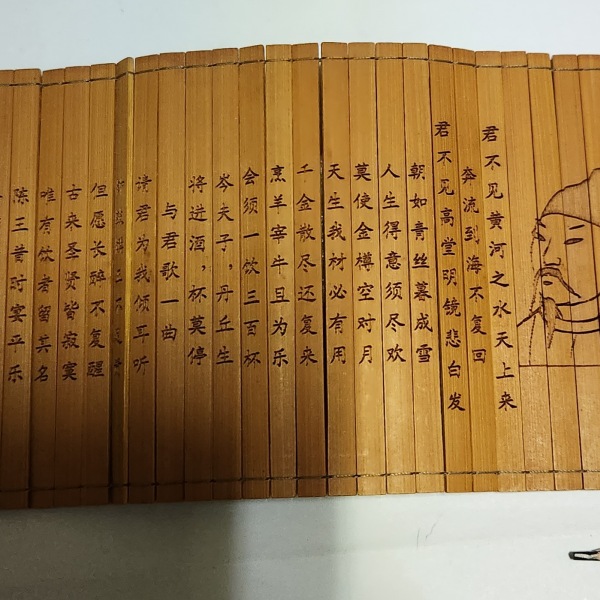 君不见黄河之水天上来
奔流到海不复回
君不见高堂明镜悲白发
朝如青丝暮成雪
人生得意须尽欢
莫使金樽空对月
天生我材必有用
千金散尽还复来
烹羊宰牛且为乐
会须一饮三百杯
岑夫子，丹丘生
将进酒，杯莫停
与君歌一曲
请君为我倾耳听
但愿长醉不复醒
古来圣贤皆寂寞
唯有饮者留其名
陈王昔时宴平乐